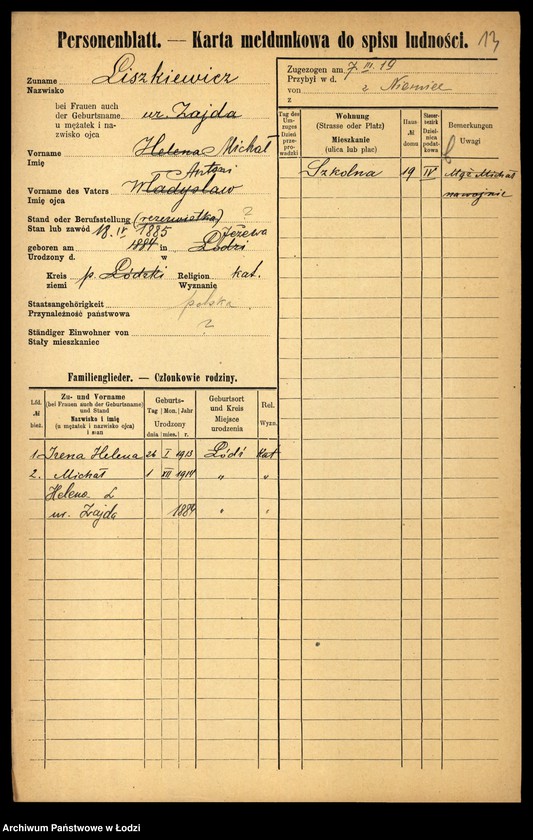 Personenblatt. — Karta meldunkowa do spisu ludności. 13
Zuname
Nazwisko
Liszkiewicz
bei Frauen auch
der Geburtsname
u mężatek i na-
zwisko ojca
ur. Zajda
Vorname
Imię
Helena Michał
Antoni
Vorname des Vaters
Imię ojca
Władysław
Stand oder Berufsstellung
Stan lub zawód
(rezerwistka) ?
18. IV 1885 Jeżewa
geboren am 1884 in Łodzi
Urodzony d. w
Kreis
ziemi
p. Łódzki
Religion
Wyznanie
kat.
Staatsangehörigkeit
Przynależność państwowa
polska
Ständiger Einwohner von
Stały mieszkaniec
?
Zugezogen am 7. III. 19
Przybył w d.
von
z
z Niemiec
Tag des
Um-
zuges
Dzień
prze-
prowadzki
Wohnung
(Strasse oder Platz)
Mieszkanie
(ulica lub plac)
Haus-
№
domu
Steuer-
bezirk
Dzielnica
podatkowa
Bemerkungen
Uwagi
Szkolna 19 IV Mąż Michał
na wojnie
Familienglieder. — Członkowie rodziny.
Lfd.
№
bież.
Zu- und Vorname
(bei Frauen auch der Geburtsname)
und Stand
Nazwisko i imię
(u mężatek i nazwisko ojca)
i stan
Geburts-
Tag Mon. Jahr
Urodzony
dnia mies. r.
Geburtsort
und Kreis
Miejsce
urodzenia
Rel.
Wyzn.
1. Irena Helena 26 I 1913 Łódź Kat
2. Michał 1 VII 1914 „ „
Helena L
ur. Zajda 1884 „ „
Archiwum Państwowe w Łodzi